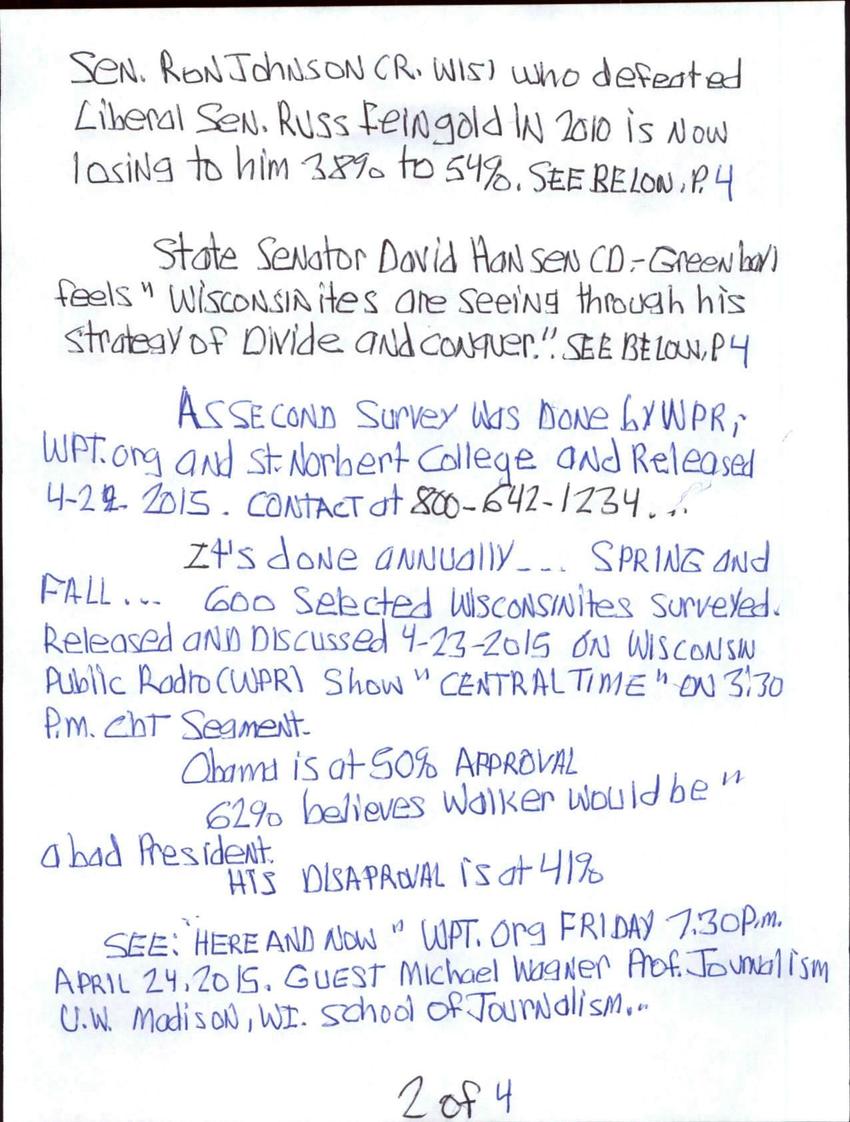 Sen. Ron Johnson (R. Wis) who defeated
Liberal Sen. Russ Feingold in 2010 is now
losing to him 38% to 54%. SEE BELOW, P. 4
State Senator David Hansen (D.-Green bay)
feels " Wisconsinites are seeing through his
strategy of Divide and conquer.". SEE BELOW, P 4
ASSECOND Survey was done by WPR,
WPT.org and St. Norbert College and Released
4-22 2015. CONTACT at 800-642-1234...
It's done annually... SPRING and
FALL... 600 Selected Wisconsinites surveyed.
Released and Discussed 4-23-2015 on Wisconsin
Public Radio (WPR) Show " CENTRAL TIME " ON 3:30
P.m. CDT Segment.
Obama is at 50% APPROVAL
62% believes Walker would be "
a bad President.
HIS DISAPROVAL is at 41%
SEE: "HERE AND NOW " WPT. Org FRIDAY 7.30 P.m.
APRIL 24, 2015. GUEST Michael Wagner Prof. Journalism
U.W. Madison, WI. School of Journalism...
2 of 4